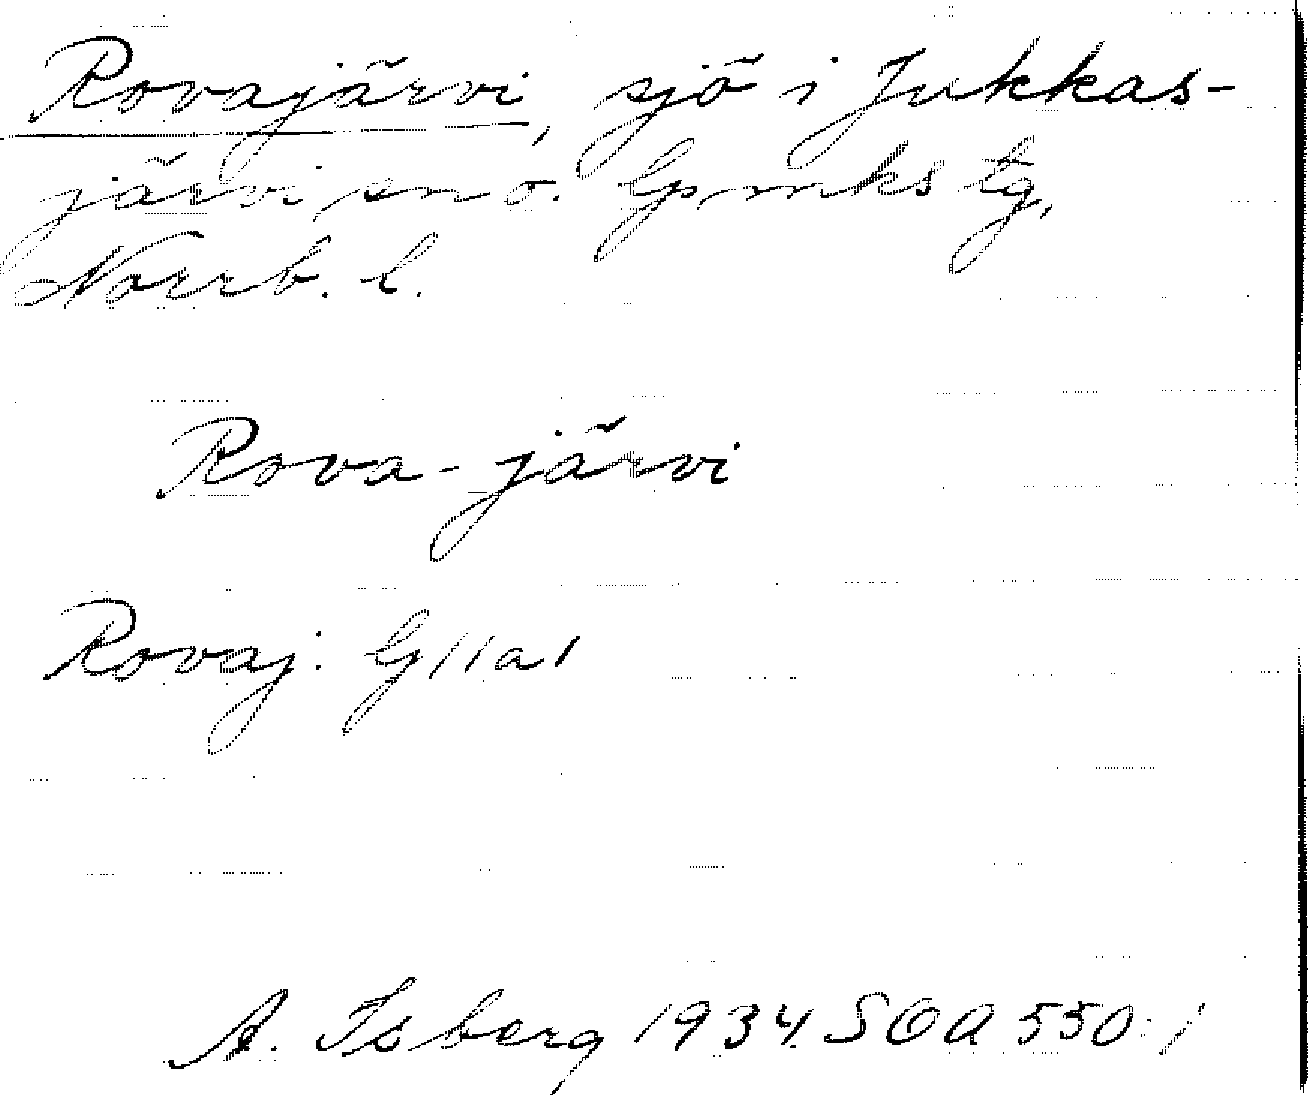 Rovajärvi, sjö i Jukkas-
järvi sn o. Gpmks tg,
Norrb. l.
Rova-järvi
Rovaj: G11a1
A. Isberg 1934 SOA 550:1